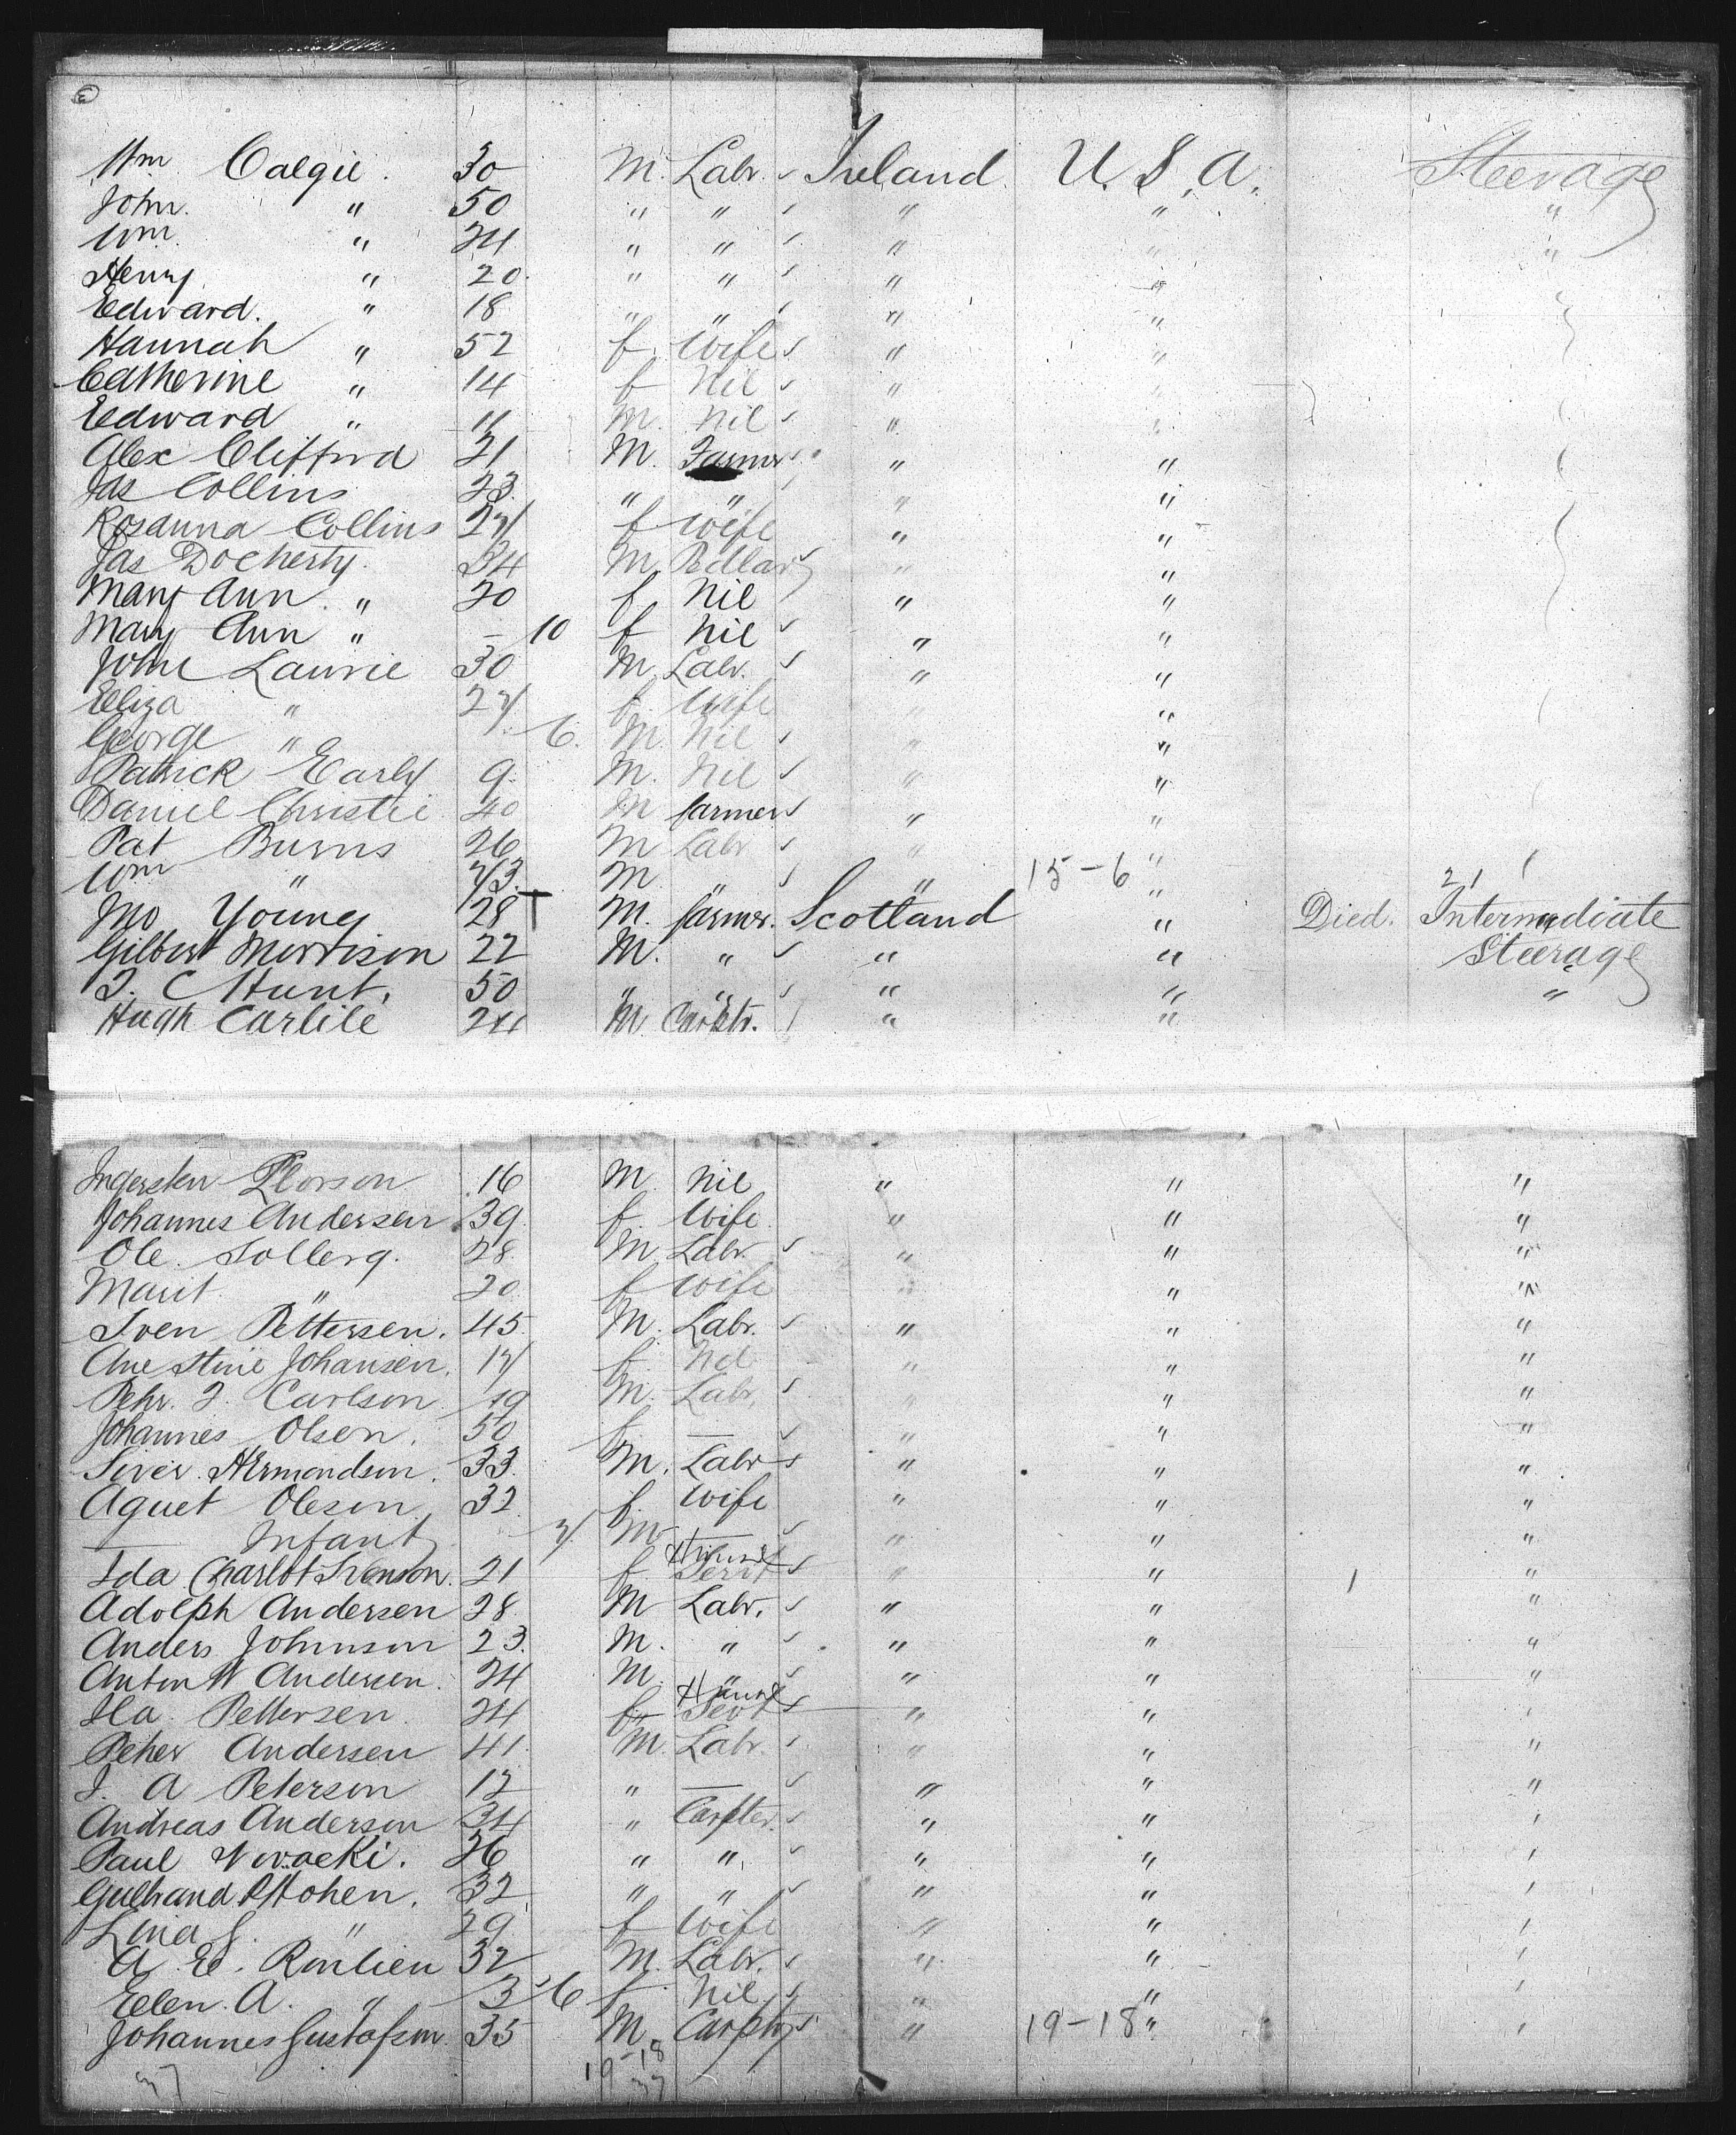 Wm Calgie. 30 M. Labr. Ireland. U.S.A. Steerage
John. " 50 " " " " "
Wm. " 24 " " " " "
Henry " 20. " " " "
Edward. " 18 " " " "
Hannah " 52 f. Wife " "
Catherine " 14 f Nil " "
Edward " 11 M. Nil " "
Alex Clifford 21 M. Farmer " "
Jas Collins 23. " " " "
Rosanna Collins 27 f Wife " "
Jas Docherty. 34 M Pedlar " "
Mary Ann. " 20 f Nil " "
Mary Ann " - 10 f Nil " "
John Laurie 30 M Labr. " "
Eliza " 27 f. Wife " "
George " 6. M. Nil " "
Patrick Early 9. M. Nil " "
Daniel Christie 40 M farmer " "
Pat Burns 26 M Labr " "
Wm " 73. M " 15-6 " 21
Jno Young 28 M. farmer. Scotland " Died. Intermediate
Gilbert Morrison 22 M. " " " Steerage
J. C Hunt. 50 " " " " "
Hugh Carlile 24 M Carptr. " "
16 M. Nil " " "
Johannes Andersen 39 f. Wife. " " "
Ole. Solberg. 28. M. Labr. " " "
Marit " 20 f Wife " " "
Sven Pettersen. 45 M. Labr. " " "
Ane Stine Johansen. 17 f. Nil " " "
Pehr. J. Carlson. 19 M. Labr. " " "
Johannes Olsen. 50 f. — " " "
Siver. Hermondson. 33. M. Labr " " "
Aguet Oleson 32 f. Wife " " "
— Infant 7. M — " " "
Ida Charlot Svenson. 21 f. Servt " " 1 "
Adolph Andersen 28 M Labr. " " "
Anders Johnson 23. M. " " " "
Anton W Andersen. 24 M. " " " "
Ila. Pettersen. 24 f Servt " " "
Peher Andersen 41. M. Labr. " " "
J. A Peterson 12 " — " " "
Andreas Anderson 34 " Carpter. " " "
Paul Nwacki. 26 " " " " "
32 " " " " "
Lina S. " 29 f Wife " " "
A. E. Ronlien 32 M. Labr. " " "
Ellen. A. " 3 6 f. Nil " " "
Johannes Gustafson 35 M. Carptr " 19-18 " "
37 19-18
37